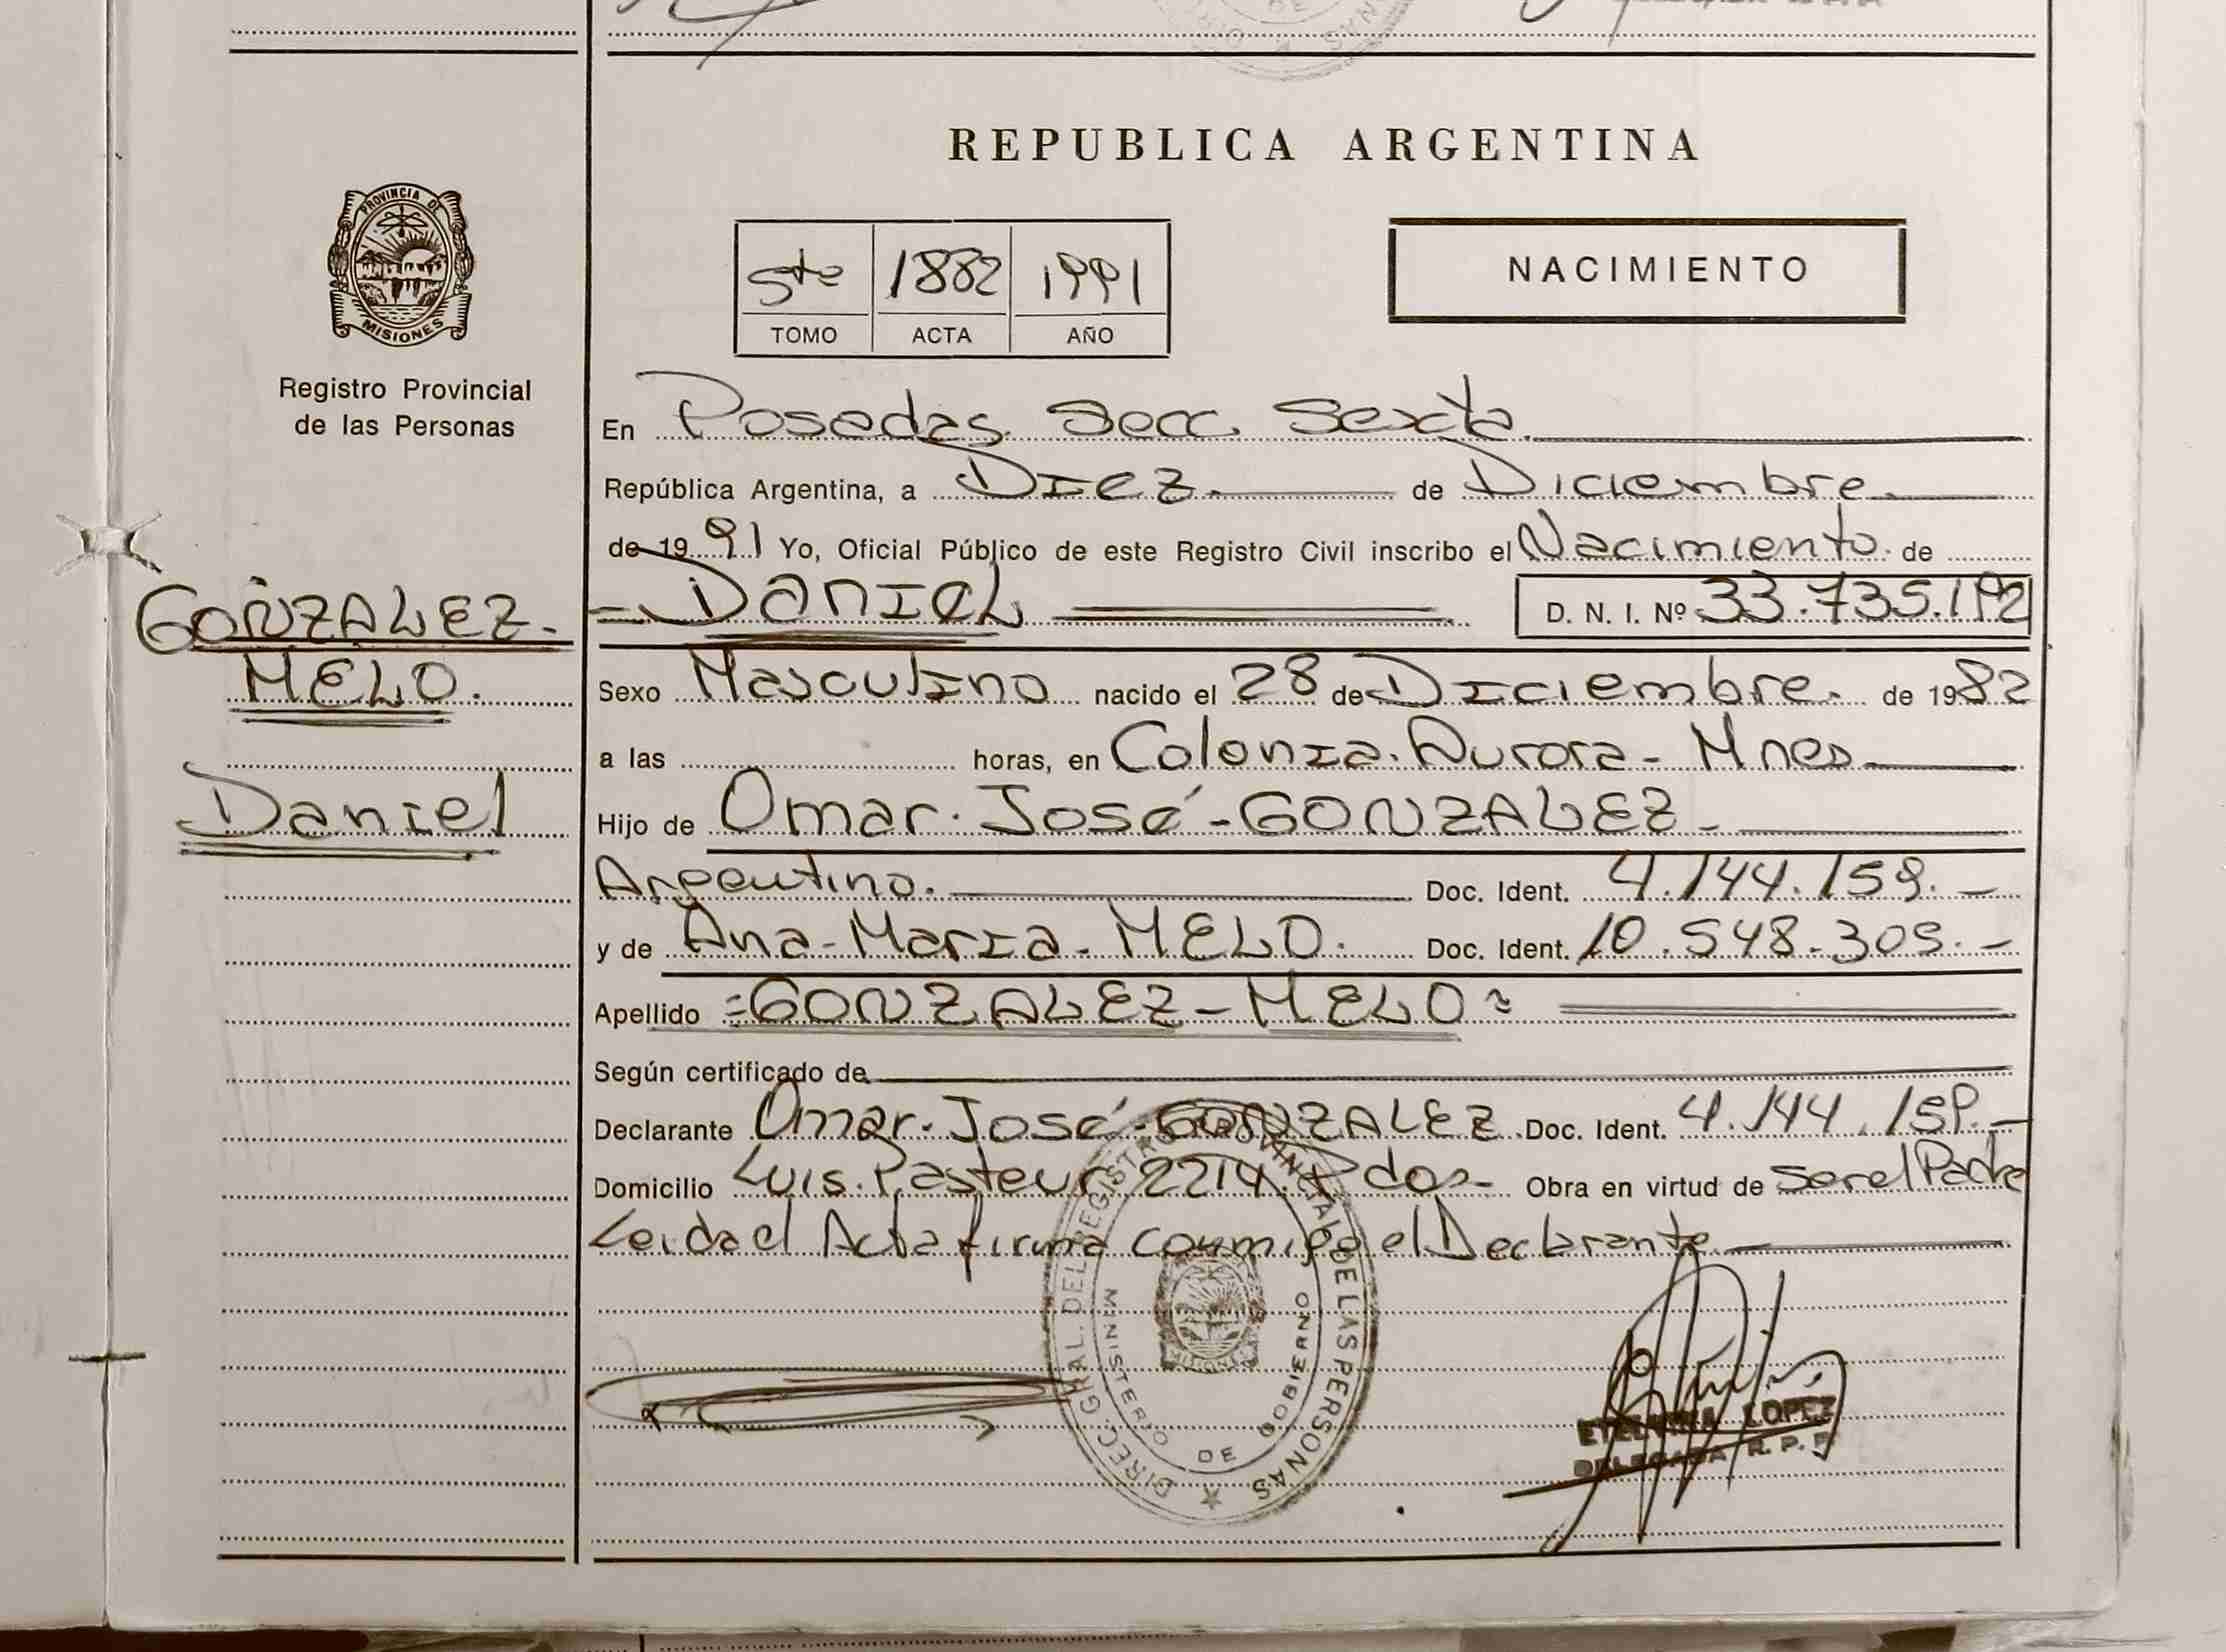 REPUBLICA ARGENTINA
PROVINCIA DE
MISIONES
Registro Provincial
de las Personas
5to 1882 1991
TOMO ACTA AÑO
NACIMIENTO
En Posadas Secc. Sexta
República Argentina, a Diez de Diciembre
de 1991 Yo, Oficial Público de este Registro Civil inscribo el Nacimiento de
DANIEL D. N. I. Nº 33.735.192
GONZALEZ-
MELO.
Daniel
Sexo Masculino nacido el 28 de Diciembre de 1982
a las horas, en Colonia Aurora - Mnes
Hijo de Omar José - GONZALEZ -
Argentino. Doc. Ident. 4.144.159.-
y de Ana-Maria-MELO. Doc. Ident. 10.548.309.-
Apellido =GONZALEZ-MELO=
Según certificado de
Declarante Omar José GONZALEZ Doc. Ident. 4.144.159.-
Domicilio Luis Pasteur 2214 Pdas- Obra en virtud de ser el Padre
Leida el Acta firma conmigo el Declarante
DIREC. GRAL. DEL REGISTRO PROVINCIAL DE LAS PERSONAS
MINISTERIO DE GOBIERNO
ETELVINA LOPEZ
DELEGADA R. P. P.